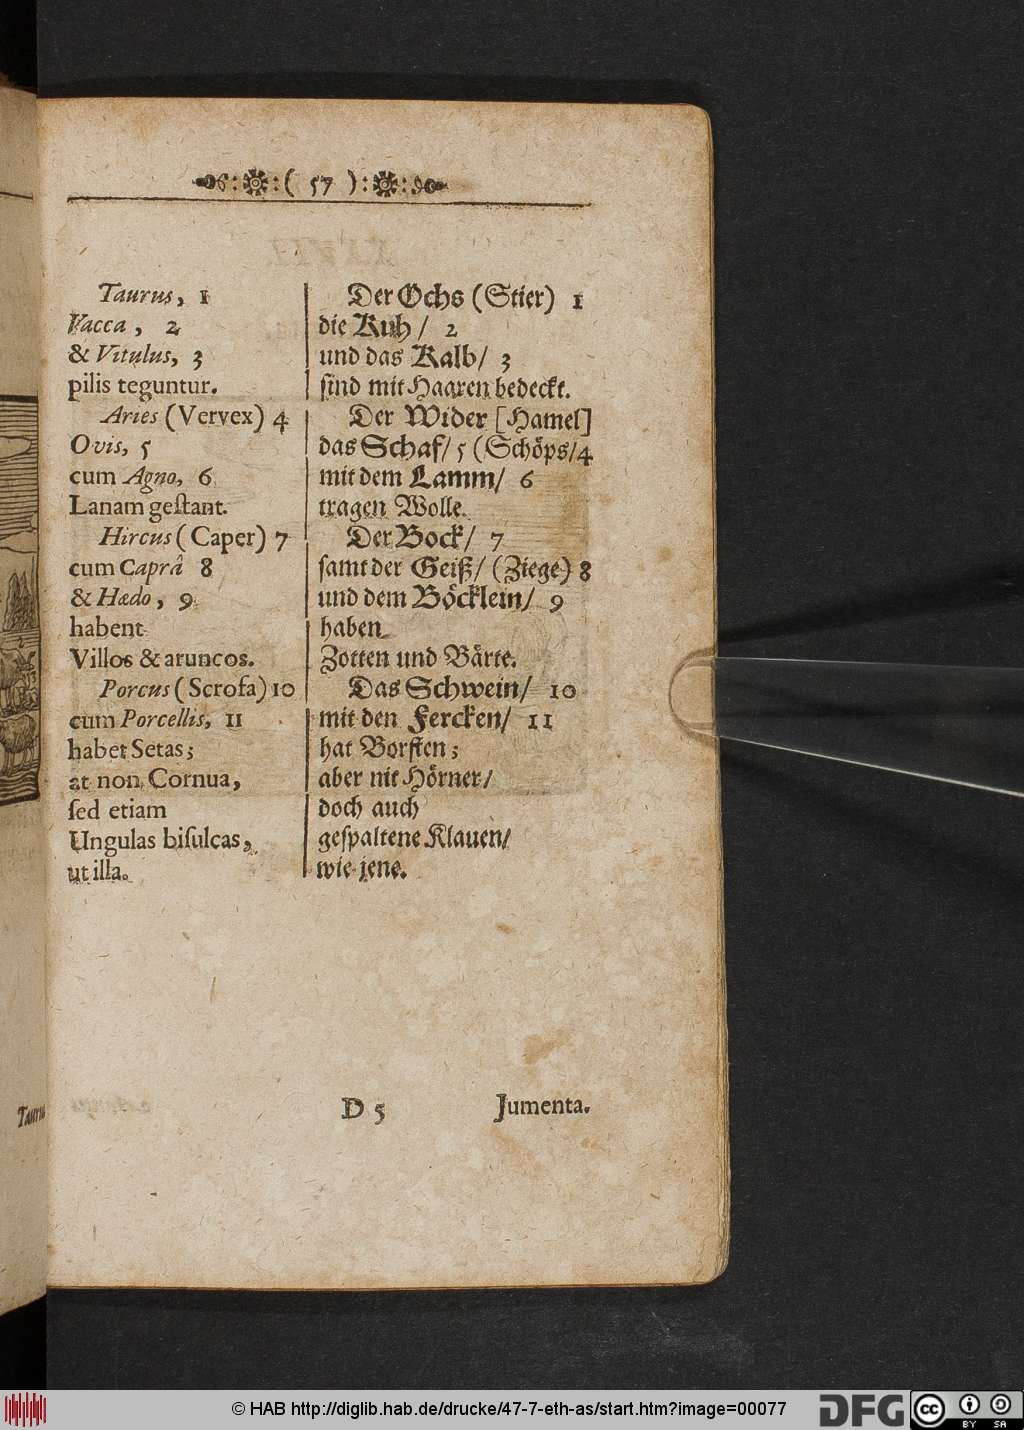 ( 57 )
Taurus, 1
Vacca, 2
& Vitulus, 3
pilis teguntur.
Aries (Vervex) 4
Ovis, 5
cum Agno, 6
Lanam geſtant.
Hircus (Caper) 7
cum Caprâ 8
& Hædo, 9
habent
Villos & aruncos.
Porcus (Scrofa) 10
cum Porcellis, 11
habet Setas;
at non Cornua,
ſed etiam
Ungulas biſulcas,
ut illa.
Der Ochs (Stier) 1
die Kuh / 2
und das Kalb / 3
ſind mit Haaren bedeckt.
Der Wider [Hamel]
das Schaf / 5 (Schöps / 4
mit dem Lamm / 6
tragen Wolle.
Der Bock / 7
ſamt der Geiß / (Ziege) 8
und dem Böcklein / 9
haben
Zotten und Bärte.
Das Schwein / 10
mit den Fercken / 11
hat Borſten;
aber nit Hörner /
doch auch
geſpaltene Klauen /
wie jene.
D 5
Jumenta.
Taurus
© HAB http://diglib.hab.de/drucke/47-7-eth-as/start.htm?image=00077
DFG
cc
BY SA